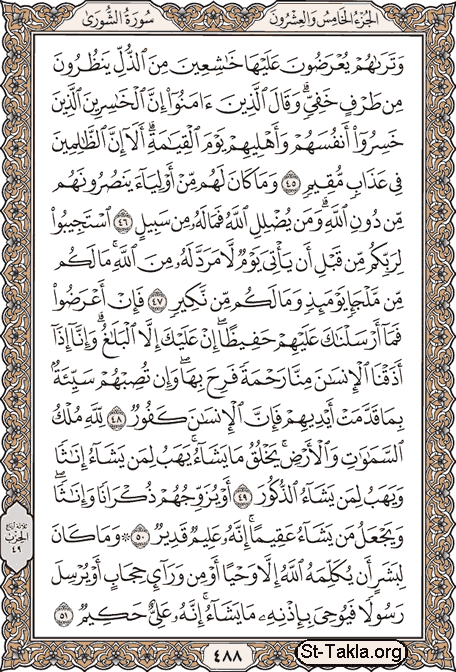 الجزء الخامس والعشرون
سورة الشورى
وَتَرَىٰهُمْ يُعْرَضُونَ عَلَيْهَا خَٰشِعِينَ مِنَ ٱلذُّلِّ يَنظُرُونَ
مِن طَرْفٍ خَفِىٍّ ۗ وَقَالَ ٱلَّذِينَ ءَامَنُوٓا۟ إِنَّ ٱلْخَٰسِرِينَ ٱلَّذِينَ
خَسِرُوٓا۟ أَنفُسَهُمْ وَأَهْلِيهِمْ يَوْمَ ٱلْقِيَٰمَةِ ۗ أَلَآ إِنَّ ٱلظَّٰلِمِينَ
فِى عَذَابٍ مُّقِيمٍ ٤٥ وَمَا كَانَ لَهُم مِّنْ أَوْلِيَآءَ يَنصُرُونَهُم
مِّن دُونِ ٱللَّهِ ۗ وَمَن يُضْلِلِ ٱللَّهُ فَمَا لَهُۥ مِن سَبِيلٍ ٤٦ ٱسْتَجِيبُوا۟
لِرَبِّكُم مِّن قَبْلِ أَن يَأْتِىَ يَوْمٌ لَّا مَرَدَّ لَهُۥ مِنَ ٱللَّهِ ۚ مَا لَكُم
مِّن مَّلْجَإٍ يَوْمَئِذٍ وَمَا لَكُم مِّن نَّكِيرٍ ٤٧ فَإِنْ أَعْرَضُوا۟
فَمَآ أَرْسَلْنَٰكَ عَلَيْهِمْ حَفِيظًا ۖ إِنْ عَلَيْكَ إِلَّا ٱلْبَلَٰغُ ۗ وَإِنَّآ إِذَآ
أَذَقْنَا ٱلْإِنسَٰنَ مِنَّا رَحْمَةً فَرِحَ بِهَا ۖ وَإِن تُصِبْهُمْ سَيِّئَةٌۢ
بِمَا قَدَّمَتْ أَيْدِيهِمْ فَإِنَّ ٱلْإِنسَٰنَ كَفُورٌ ٤٨ لِّلَّهِ مُلْكُ
ٱلسَّمَٰوَٰتِ وَٱلْأَرْضِ ۚ يَخْلُقُ مَا يَشَآءُ ۚ يَهَبُ لِمَن يَشَآءُ إِنَٰثًا
وَيَهَبُ لِمَن يَشَآءُ ٱلذُّكُورَ ٤٩ أَوْ يُزَوِّجُهُمْ ذُكْرَانًا وَإِنَٰثًا ۖ
وَيَجْعَلُ مَن يَشَآءُ عَقِيمًا ۚ إِنَّهُۥ عَلِيمٌ قَدِيرٌ ٥٠ ۞ وَمَا كَانَ
لِبَشَرٍ أَن يُكَلِّمَهُ ٱللَّهُ إِلَّا وَحْيًا أَوْ مِن وَرَآئِ حِجَابٍ أَوْ يُرْسِلَ
رَسُولًا فَيُوحِىَ بِإِذْنِهِۦ مَا يَشَآءُ ۚ إِنَّهُۥ عَلِىٌّ حَكِيمٌ ٥١
ثلاثة أرباع
الحزب
٤٩
٤٨٨
St-Takla.org